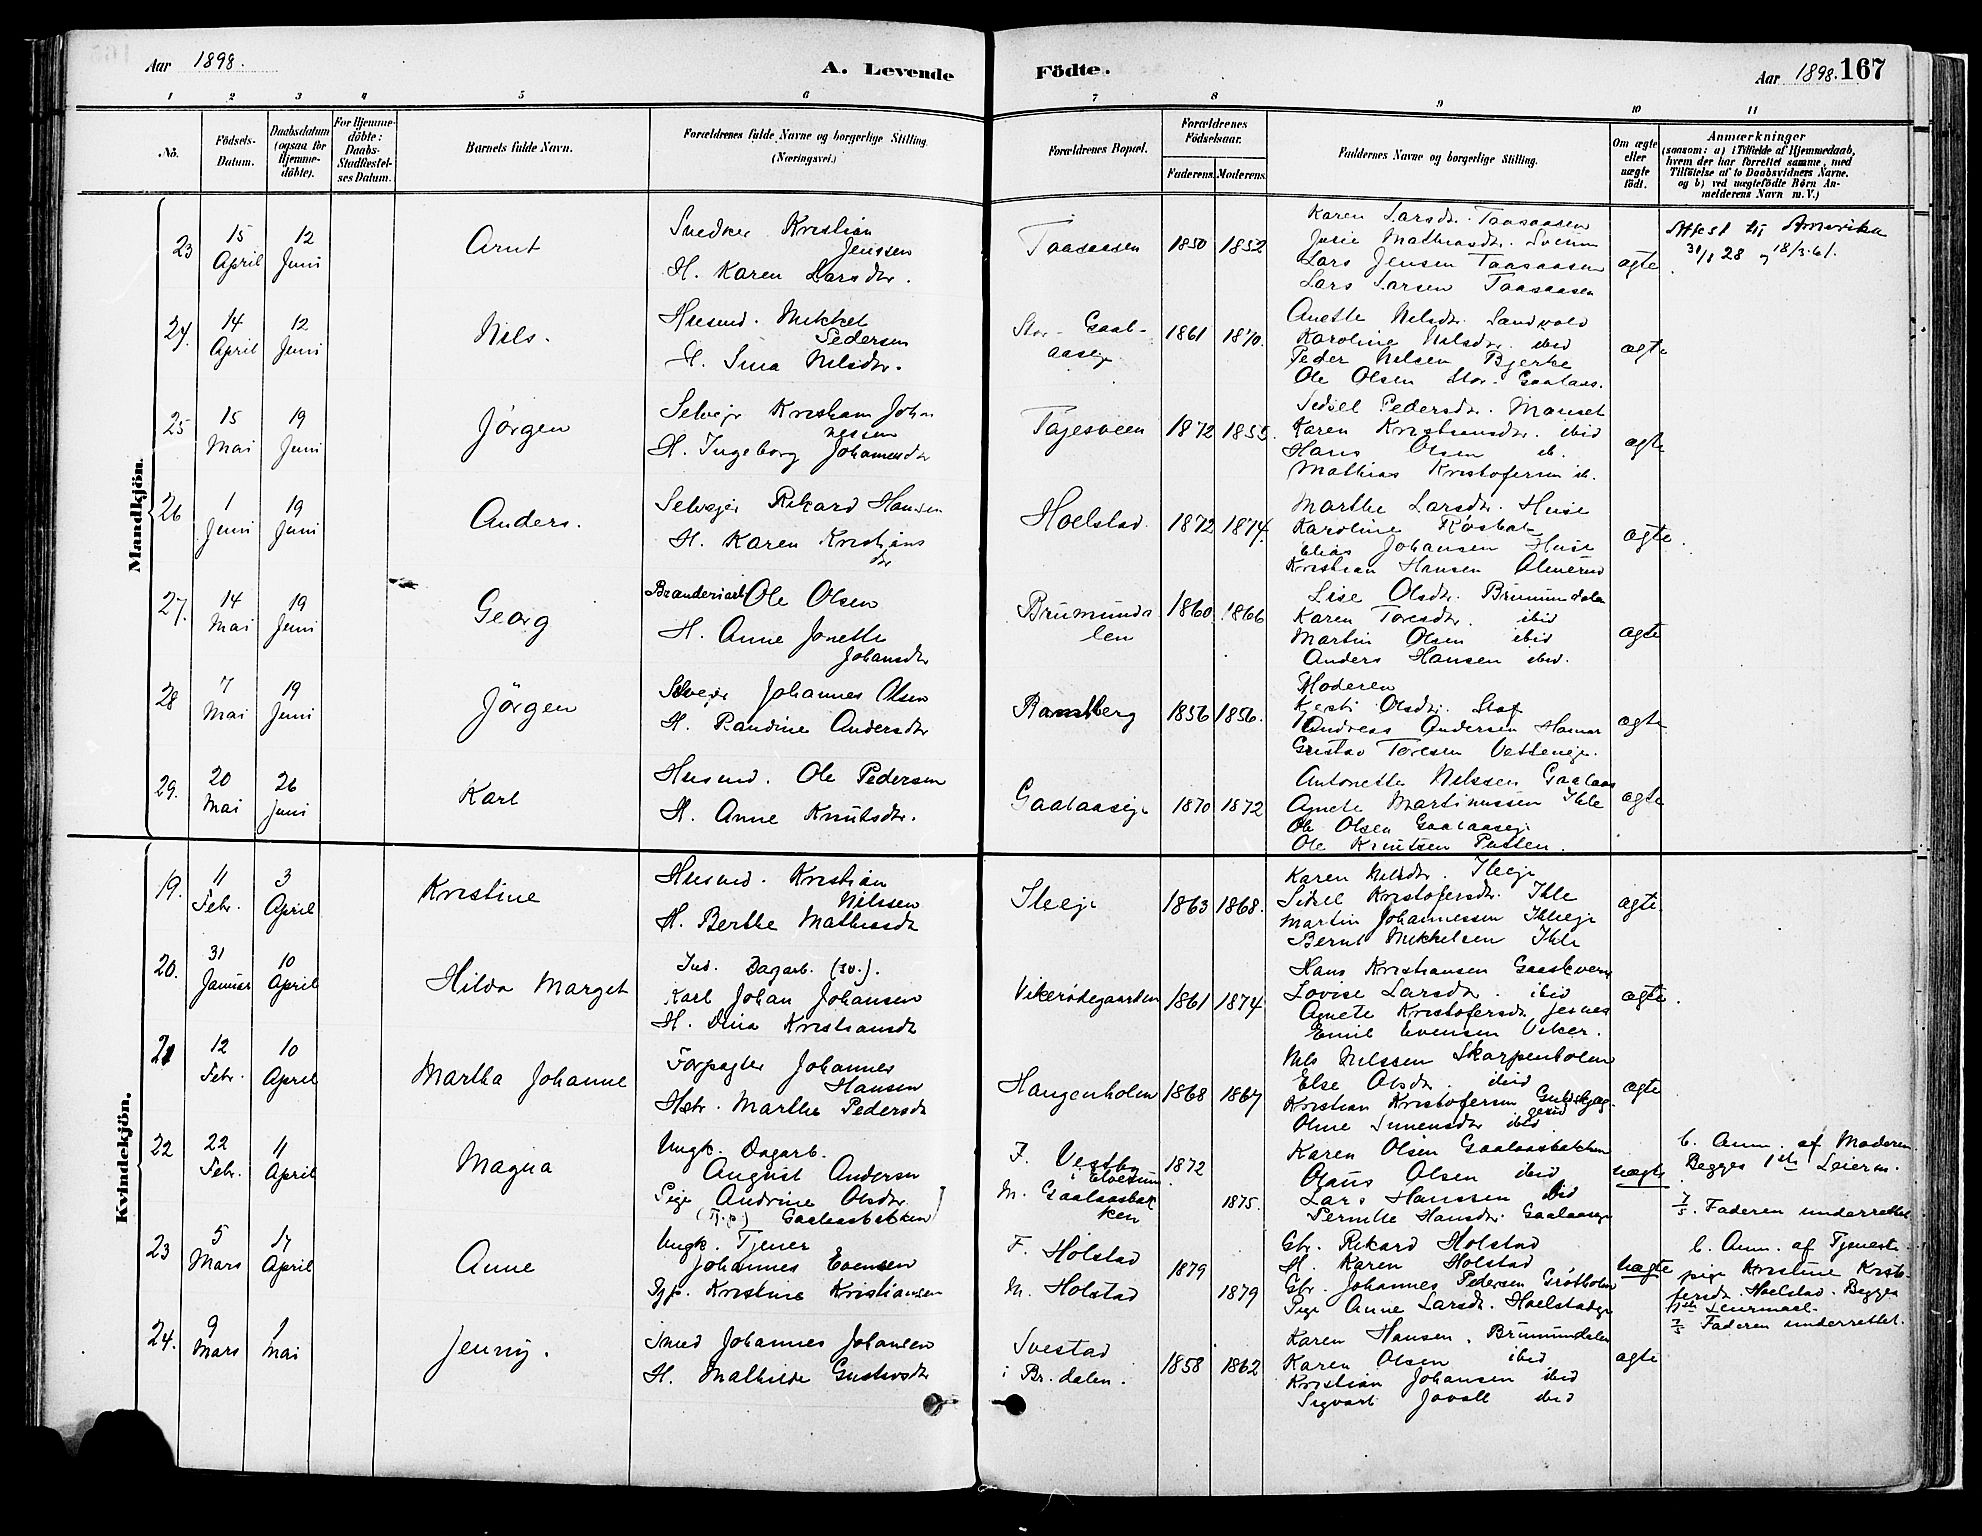 Aar 1898.
A. Levende Födte.
Aar 1898. 167
1 2 3 4 5 6 7 8 9 10 11
No.
Födsels-Datum.
Daabsdatum (ogsaa for Hjemme-döbte).
For Hjemme-döbte: Daabs-Stadfæstel-ses Datum.
Barnets fulde Navn.
Forældrenes fulde Navne og borgerlige Stilling (Næringsvei.)
Forældrenes Bopæl.
Forældrenes Födselsaar.
Faderens. Moderens.
Faddernes Navne og borgerlige Stilling.
Om ægte eller uægte födt.
Anmærkninger
(saasom: a) i Tilfælde af Hjemmedaab,
hvem der har forrettet samme, med
Tilföielse af to Daabsvidners Navne.
og b) ved uægtefödte Börn An-
melderens Navn m.V.)
Mandkjön.
23 15 April 12 Juni Arnt
Snedker Kristian Jenssen
H. Karen Larsdtr.
Taasaasen 1850 1852
Karen Larsdtr. Taasaasen
Josie Mathiasdtr. Sveum
Lars Jensen Taasaasen
Lars Larsen Taasaasen
ægte.
Attest til Amerika
31/1 28 og 18/3-61.
24. 14 April 12 Juni Nils.
Husmd. Mikkel Pedersen
H. Sina Nilsdtr.
Stor-Gaalaaseje 1861 1870.
Anette Nilsdtr. Sandvold
Karoline Nilsdtr. ibid
Peder Nilsen Bjerke
Ole Olsen Stor-Gaalaas.
ægte
25 15 Mai 19 Juni Jörgen
Selvejr Kristian Johannessen
H. Ingeborg Johannesdtr
Tajesveen 1872 1855.
Sidsel Pedersdtr.
Karen Kristiansdtr. ibid
Hans Olsen ib.
Mathias Kristofersen ib.
ægte
26 1 Juni 19 Juni Anders.
Selvejer Rikard Hansen
H. Karen Kristiansdtr
Hoelstad. 1872 1874.
Marthe Larsdtr. Huse
Karoline
Elias Johansen Huse
Kristian Hansen Olmerud
ægte.
27. 14 Mai 19 Juni Georg
Brænderiarb Ole Olsen
H. Anne Jonette Johansdtr
Brumundalen 1860 1866
Lise Olsdtr. Brumundalen
Karen Toresdtr. ibid
Martin Olsen ibid
Anders Hansen ibid.
ægte
28 7 Mai 19 Juni Jörgen
Selvejer Johannes Olsen
H. Randine Andersdtr
Ramsberg 1856 1856.
Moderen
Kjersti Olsdtr. Stof
Andreas Andersen Hamar
Gustav ToresenВатteneje
ægte
29. 20 Mai 26 Juni Karl
Husmd. Ole Pedersen
H. Anne Knutsdtr.
Gaalaaseje 1870 1872
Antonette Nilssen Gaalaas
Agnete Martinussen Ihle
Ole Olsen Gaalaaseje
Ole Knutsen Putten.
ægte
Kvindekjön.
19. 11 Febr. 3 April Kristine
Husmd. Kristian Nilssen
H. Berthe Mathiasdtr
Ileeje 1863 1868.
Karen Nilsdtr. Ileeje
Sidsel Kristofersdtr. Ihle
Martin Johannessen Ihleeje
Bernt Mikkelsen Ihle
ægte.
20. 31 Januar 10 April Hilda Marget
Ind. Dagarb. (sv.).
Karl Johan Johansen
H. Dina Kristiansdtr
Vikerödegaarden 1861 1874
Hans Kristiansen Gaaskvern
Lovise Larsdtr. ibid
Agnete Kristofersdtr. Jesnes
Emil Evensen Viker.
ægte.
21 12 Febr. 10 April Martha Johanne
Forpagter Johannes Hansen
Hstr. Marthe Pedersdtr
Hangenholm 1868 1867
Nils Nilssen Skarpenholm
Else Olsdtr. ibid
Kristian Kristofersen
Oline Simensdtr ibid
ægte
22 22 Febr. 11 April Magna
Ungk. Dagarb.
August Andersen
Pige Andrine Olsdtr.
(Tj.p.) Gaalaasbakken
F. Vestby i Elverum 1872
M. Gaalaasbakken 1875.
Karen Olsen Gaalaasbakken
Olaus Olsen ibid
Lars Hanssen ibid
Pernille Hansdtr. Gaalaaseje
uægte
b. Anm. af Moderen
Begges 1ste Leierm.
7/5. Faderen underrettet
23 5 Mars 17 April Anne
Ungk. Tjener
Johannes Evensen
Pige. Kristine Kristiansen
F. Holstad 1879
M. Holstad 1879
Gbr. Rikard Holstad
H. Karen Holstad
Gbr. Johannes Pedersen Grötholm
Pige Anne Larsdtr. Hoelstadeje
uægte
b. Anm. af Tjeneste-
pige Kristine Kristo-
fersdtr. Hoelstad. Begges
1ste Leiermaal.
7/5 Faderen underrettet.
24. 9 Mars 1 Mai Jenny.
Smed Johannes Johansen
H. Mathilde Gustavsdtr
Svestad
i Br.dalen. 1858 1862
Karen Hansen. Brumundalen
Karen Olsen ibid
Kristian Johansen ibid
Sigvart Jovall ibid
ægte